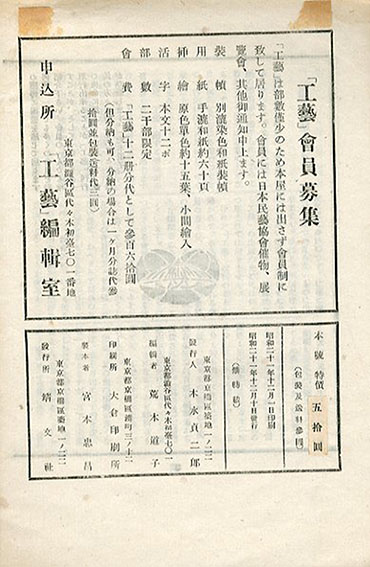 「工藝」會員募集
「工藝」は部數僅少のため本屋には出さず會員制に
致して居ります。會員には日本民藝協會催物、展
覽會、其他御通知申上ます。
裝幀 別漉染色和紙裝幀
用紙 手漉和紙約六十頁
挿繪 原色單色約十五葉、小間繪入
活字 本文十二ポ
部數 二千部限定
會費 「工藝」十二册分代として參百六拾圓
(但分納も可、分納の場合は一ヶ月分誌代參
拾圓並包裝送料代三圓)
東京都澁谷區代々木初臺七〇一番地
申込所 「工藝」編輯室
本號 特價 五拾圓
(包裝及送料參圓)
昭和二十一年十二月一日印刷
昭和二十一年十二月十日發行
東京都京橋區築地一ノ二二
發行人 木水貞二郎
東京都澁谷區代々木初臺七〇一
編輯者 荒木道子
東京都京橋區
印刷所 大倉印刷所
製本者 宮本忠昌
東京都京橋區築地一ノ二二
發行所 靖文社